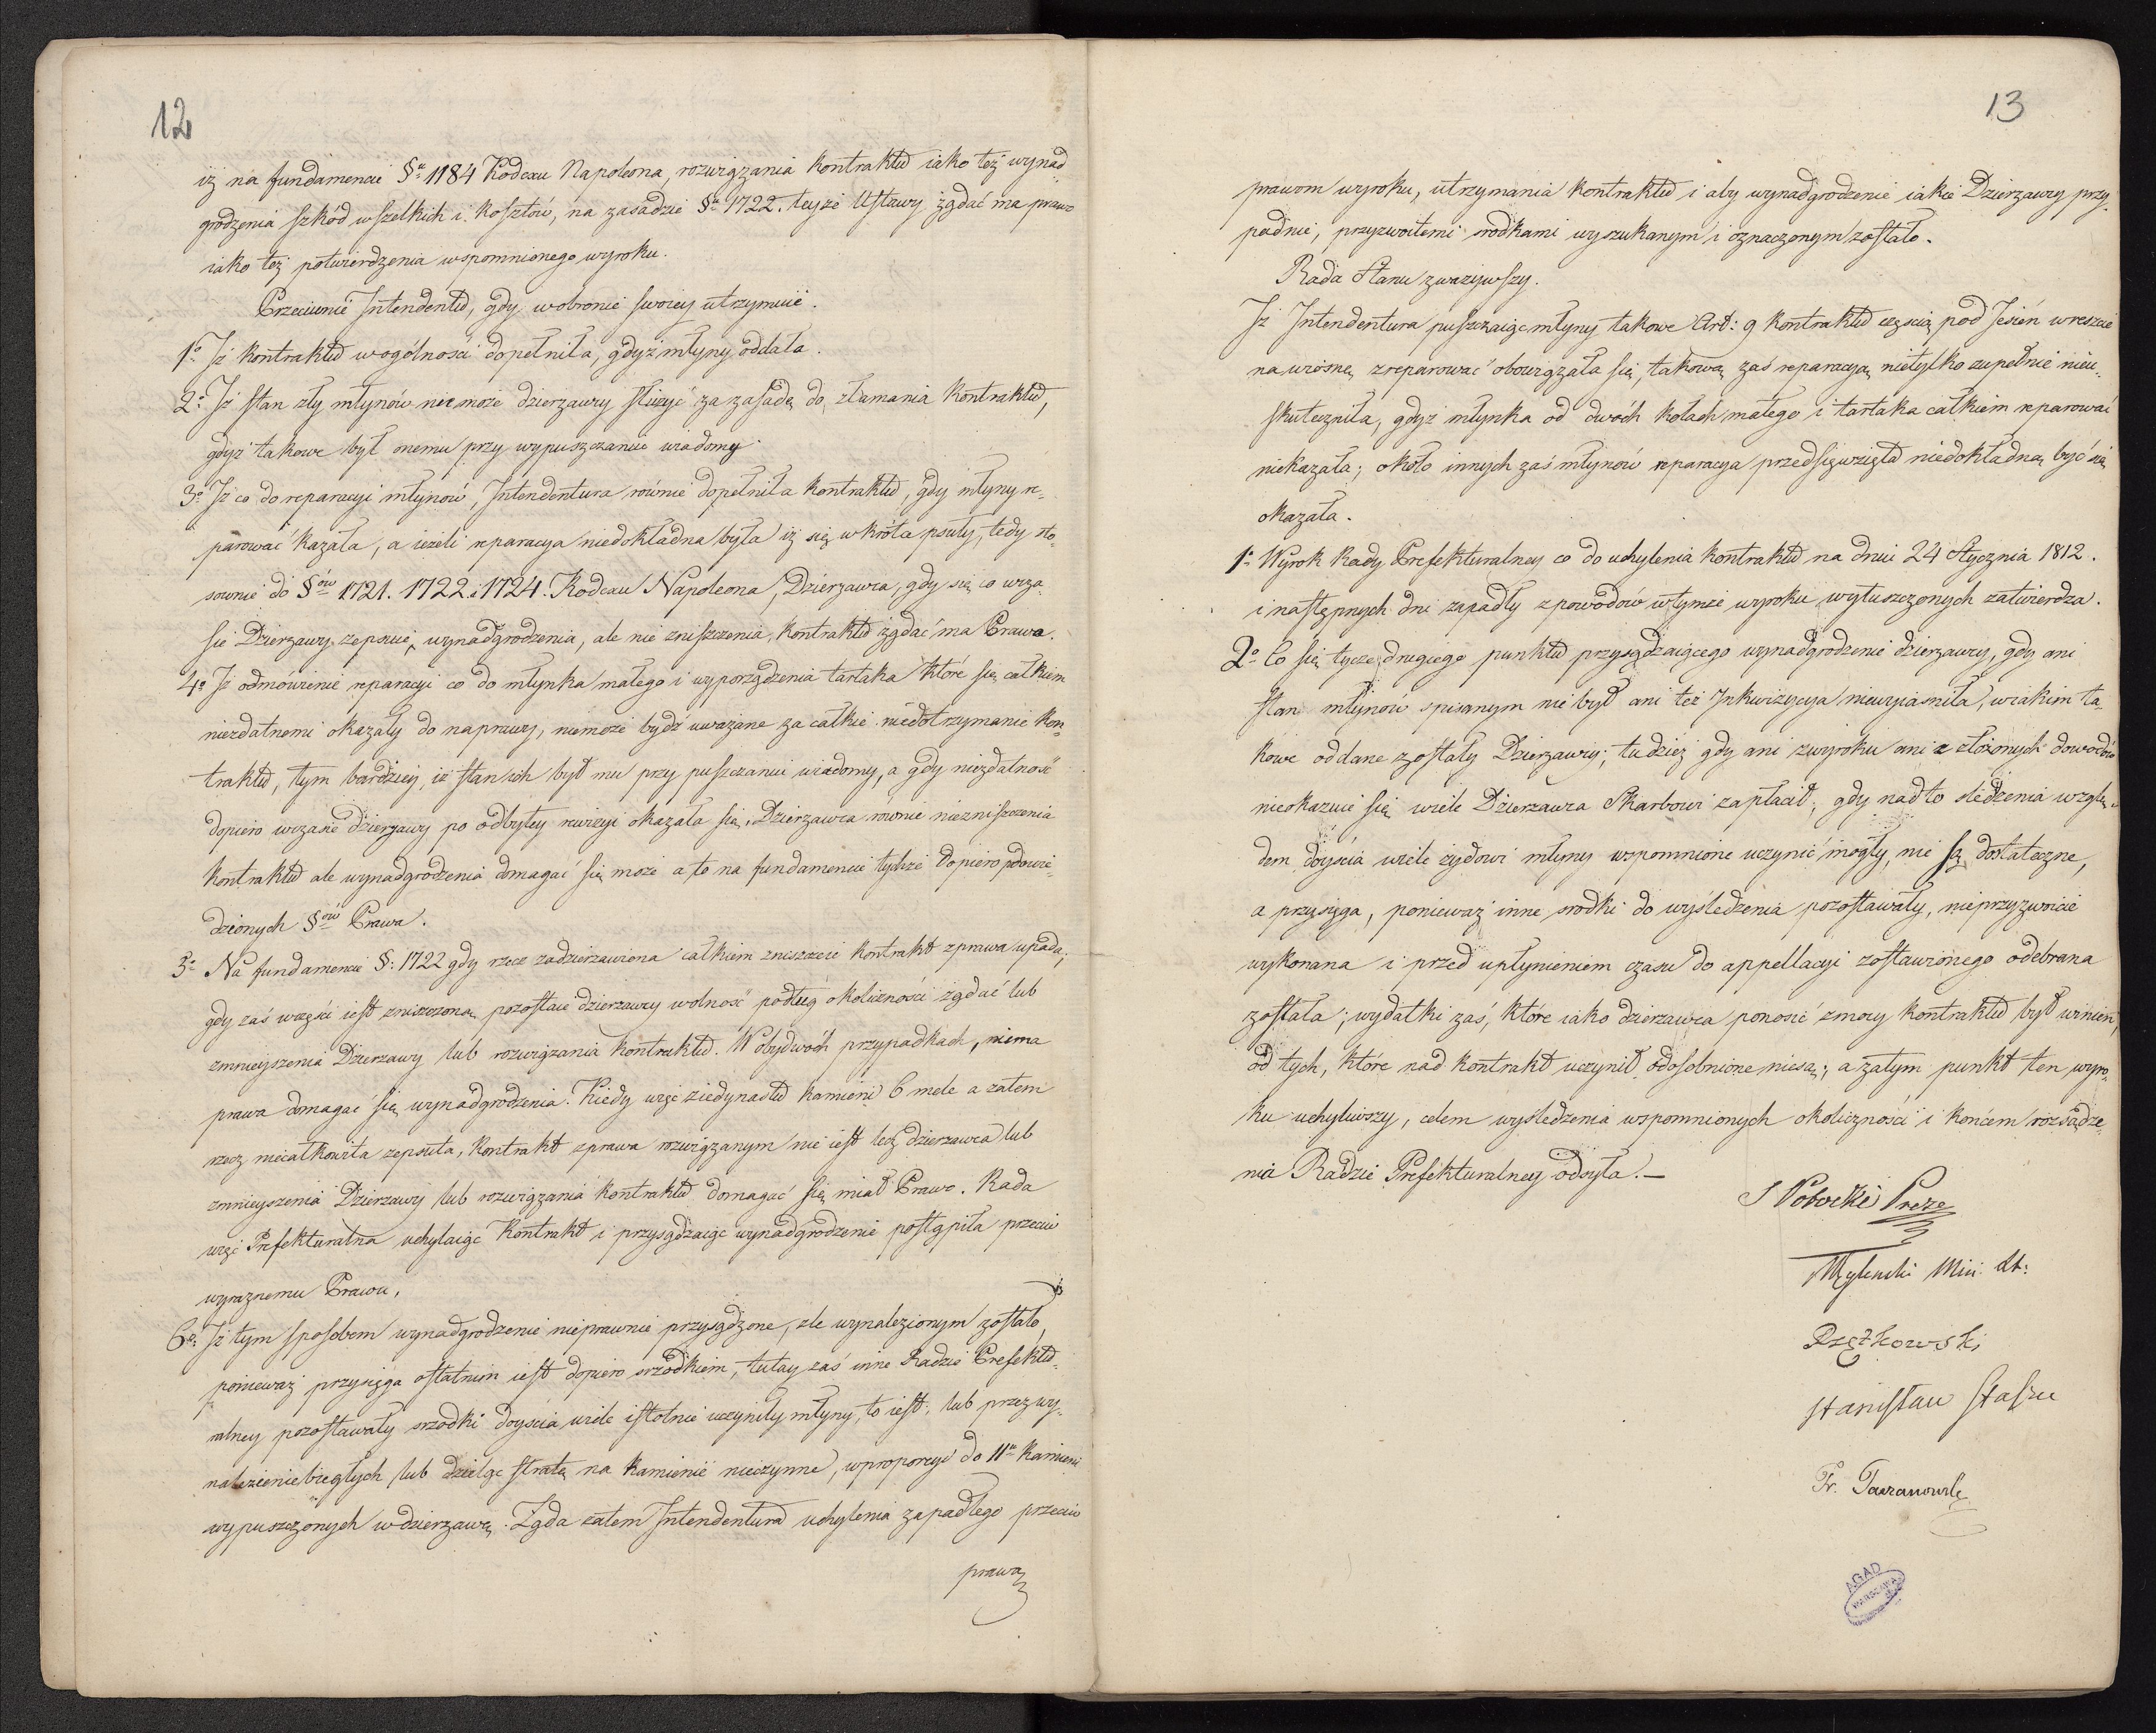 12
iż na fundamencie §u 1184 Kodexu Napoleona, rozwiązania kontraktu iako też wynad¬
grodzenia szkód wszelkich i kosztów, na zasadzie §u 1722. teyże Ustawy żądać ma prawo
iako też potwierdzenia wspomnionego wyroku.
Przeciwnie Intendentu, gdy w obronie swoiey utrzymuie.
1o Iż kontraktu w ogólności dopełniła, gdyż młyny oddała.
2o Iż stan zły młynów nie może dzierzawcy służyć za zasadę do złamania kontraktu,
gdyż takowe był onemu przy wypuszczaniu wiadomy.
3o Iż co do reparacyi młynów, Intendentura równie dopełniła kontraktu, gdy młyny re¬
parować kazała, a ieżeli reparacya niedokładna była iż się w krótce psuły, tedy sto¬
sownie do §ów 1721. 1722. i 1724. Kodexu Napoleona, Dzierżawca, gdy się co w cza¬
sie Dzierżawy zepsuie, wynadgrodzenia, ale nie zniszczenia kontraktu żądać ma Prawo.
4o Iż odmówienie reparacyi co do młynka małego i wyporządzenia tartaka które się całkiem
niezdatnemi okazały do naprawy, niemoże bydź uważane za całkie niedotrzymanie kon¬
traktu, tym bardziey, iż stan ich był mu przy puszczaniu wiadomy, a gdy niezdatność
dopiero w czasie dzierżawy po odbytey rewizyi okazała się, Dzierżawca równie niezniszczenia
kontraktu ale wynadgrodzenia domagać się może a to na fundamencie tychże dopiero powie¬
dzionych §ów Prawa.
5o Na fundamencie §: 1722 gdy rzecz zadzierzawiona całkiem zniszczeie kontrakt z prawa upada;
gdy zaś w części iest zniszczona, pozostaie dzierzawcy wolność podług okoliczności żądać lub
zmnieyszenia Dzierzawy lub rozwiązania kontraktu. W obydwóch przypadkach, niema
prawa domagać się wynadgrodzenia. Kiedy więc z iedynastu kamieni 6 mele a zatem
rzecz niecałkowita zepsuta, kontrakt z prawa rozwiązanym nie iest lecz dzierzawca lub
zmnieyszenia Dzierzawy lub rozwiązania kontraktu domagać się miał Prawo. Rada
więc Prefekturalna uchylaiąc Kontrakt i przysądzaiąc wynadgrodzenie postąpiła przeciw
wyraznemu Prawu.
6o: Iż tym sposobem wynadgrodzenie nieprawnie przysądzone, źle wynalezionym zostało,
ponieważ przysięga ostatnim iest dopiero srzodkiem, tutay zaś inne Radzie Prefektu¬
ralney pozostawały srzodki doyscia wiele istotnie uczyniły młyny, to iest, lub przez wy¬
nalezienie biegłych lub dzieląc stratę na kamienie nieczynne, w proporcyi do 11u kamieni
wypuszczonych w dzierzawę. Żąda zatem Intendentura uchylenia zapadłego przeciw
prawu
13
prawom wyroku, utrzymania kontraktu i aby wynadgrodzenie iakie Dzierzawcy przy¬
padnie, przyzwoitemi srodkami wyszukanym i oznaczonym zostało.
Rada Stanu zważywszy.
Iż Intendentura puszczaiąc młyny takowe Art: 9 kontraktu częścią pod Jesień wreszcie
na wiosnę zreparować obowiązała się, takową zaś reparacyą nietylko zupełnie nieu¬
skuteczniła, gdyż młynka od dwóch kołach małego i tartaka całkiem reparować
niekazała; około innych zaś młynów reparacya przedsięwzięta niedokładną być się
okazała.
1o Wyrok Rady Prefekturalney co do uchylenia kontraktu na dniu 24 Stycznia 1812.
i następnych dni zapadły z powodów w tymże wyroku wytuszczonych zatwierdza.
2o Co się tycze drugiego punktu przysądzaiącego wynadgrodzenie dzierzawcy, gdy ani
stan młynów spisanym nie był ani też Inkwizycya niewyiasniła, w iakim ta¬
kowe oddane zostały Dzierzawcy; tudzież gdy ani z wyroku ani z złożonych dowodów
nieokazuie się wiele Dzierzawca Skarbowi zapłacił; gdy nadto sledzenia wzglę¬
dem doyscia wiele żydowi młyny wspomnione uczynić mogły, nie są dostateczne,
a przysięga, ponieważ inne srodki do wyśledzenia pozostawały, nieprzyzwoicie
wykonana i przed upłynieniem czasu do appellacyi zostawionego odebrana
została; wydatki zaś, które iako dzierzawca ponosić z mocy kontraktu był winien,
od tych, które nad kontrakt uczynił odosobnione niesą; a zatym punkt ten wyro¬
ku uchyliwszy, celem wysledzenia wspomnionych okoliczności i końcem rozsądze¬
nia Radzie Prefekturalney odsyła.—
S Potocki Preze
Węglenski Min: St:
Stanisław Staszic
AGAD
WARSZAWA